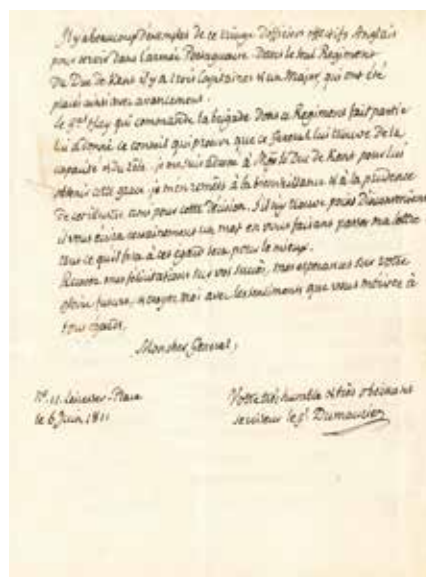 Il y a beaucoup d'exemples de ce tirage d'officiers effectifs Anglais
pour servir dans l'armée Portugaise. Dans le seul Regiment
du Duc de Kent il y a trois Capitaines et un Major, qui ont été
placés ainsi avec avancement.
Le Gal Hay qui commande la brigade dont ce Regiment fait partie
lui a donné ce conseil qui prouve que ce General lui trouve de la
capacité et du zèle. je me suis adressé à Mgr le Duc de Kent pour lui
obtenir cette grace. je m'en remets à la bienveillance et à la prudence
de cet illustre ami pour cette décision. S'il n'y trouve point d'inconvenient
il vous écrira certainement un mot en vous faisant passer ma lettre
tout ce qu'il fera à cet égard sera pour le mieux.
Recevez mes félicitations sur vos succès, mes esperances sur votre
gloire future, et croyez moi avec les sentiments que vous méritez à
tous égards,
Monsieur General,
No. 11. Leicester-Place
le 6 Juin 1811
Votre très humble et très obeissant
serviteur le gl Dumouriez